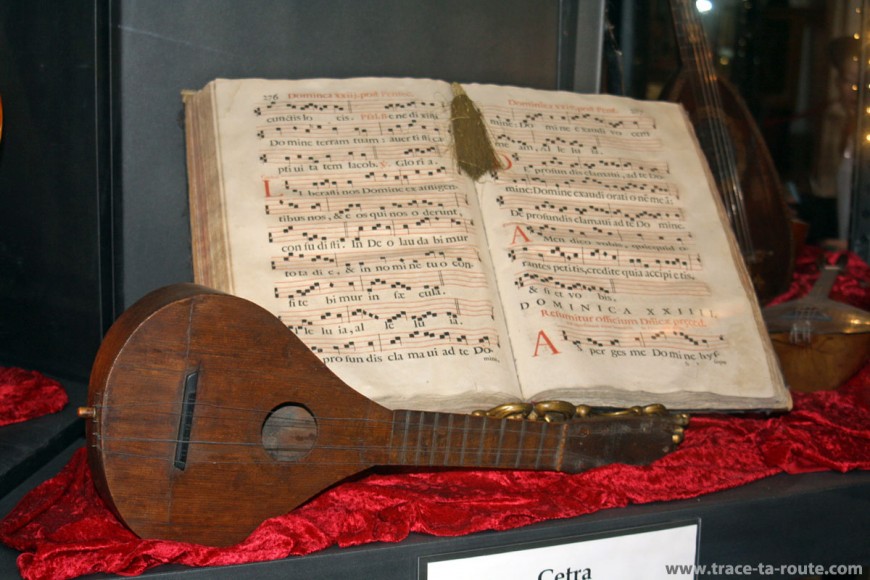 276 Dominica xxiii.post Pentec.
cunctis lo cis. Ps.84. Be ne di xisti
Do mine terram tuam: auer ti sti ca
pti ui ta tem Iacob. ℣. Glo ri a.
L I berasti nos Domine ex affligen-
tibus nos, & e os qui nos o derunt,
con fu di sti. In De o lau da bi mur
to ta di e, & in no mi ne tu o con-
fi te bi mur in sæ cula.
Al le lu ia, al le lu ia.
De pro fun dis cla ma ui ad te Do-
mine,
Dominica xxiii.post Pent.
mine: Do mi ne exaudi vo cem
me am, al le lu ia.
D E profun dis clamaui, ad te Do
mine: Domine exaudi orati o nē me ā:
De profundis clamaui ad te Do mine.
A Men dico vobis, quicquid o-
rantes petitis, credite quia accipi e tis,
& fi et vo bis.
DOMINICA XXIIII.
A per ges me Domi ne hys
sopo
Cetra
www.trace-ta-route.com